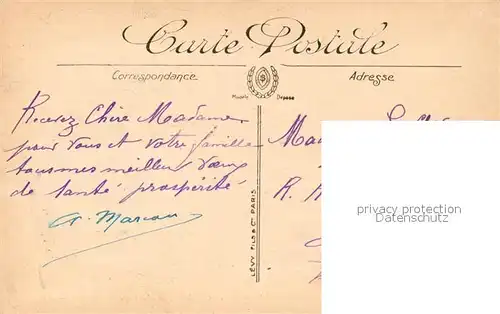 Carte Postale
Correspondance
Adresse
Modèle Déposé
Recevez Chère Madame
pour vous et votre famille
tous mes meilleurs vœux
de santé prospérité
LÉVY FILS & Cie PARIS
privacy protection
datenschutz